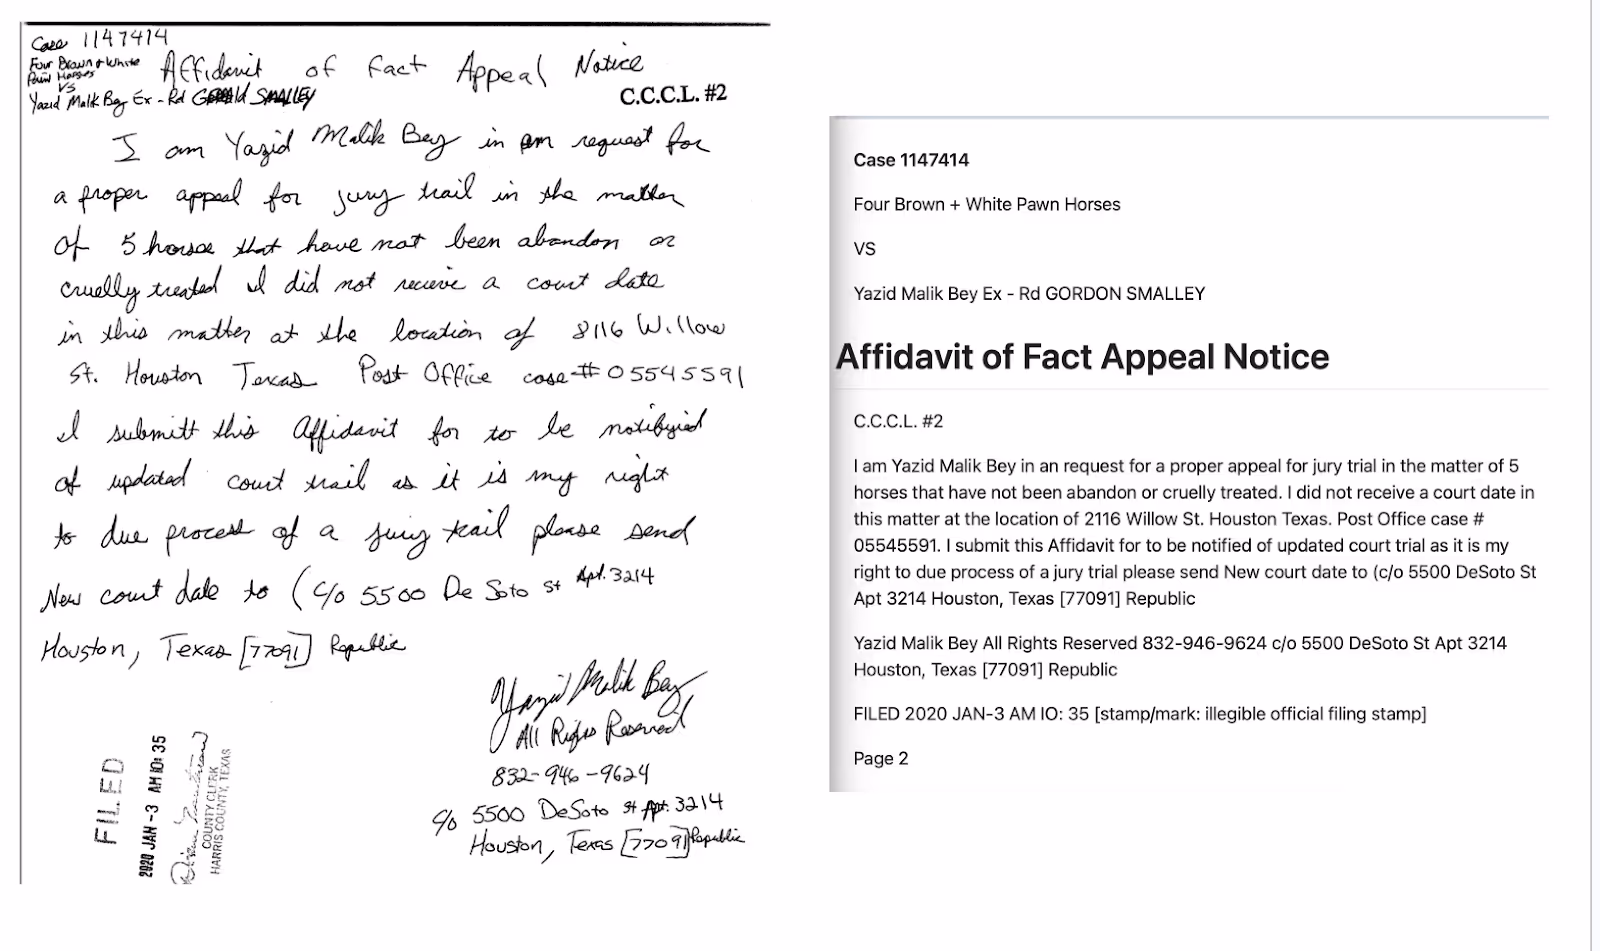 Case 1147414
Four Brown & White
Pain Horses
VS
Yazid Malik Bey Ex-Rel SMALLEY
Affidavit of Fact Appeal Notice
C.C.C.L. #2
I am Yazid Malik Bey in an request for
a proper appeal for jury trail in the matter
of 5 horse that have not been abandon or
cruelly treated I did not recieve a court date
in this matter at the location of 8116 Willow
St. Houston Texas Post Office case # 05545591
I submitt this Affidavit for to be notifyied
of updated court trail as it is my right
to due process of a jury trail please send
New court date to (c/o 5500 De Soto St Apt. 3214
Houston, Texas [77091] Republic
Yazid Malik Bey
All Rights Reserved
832-946-9624
c/o 5500 DeSoto St Apt. 3214
Houston, Texas [77091] Republic
FILED
2020 JAN -3 AM 10: 35
COUNTY CLERK
HARRIS COUNTY, TEXAS
Case 1147414
Four Brown + White Pawn Horses
VS
Yazid Malik Bey Ex - Rd GORDON SMALLEY
Affidavit of Fact Appeal Notice
C.C.C.L. #2
I am Yazid Malik Bey in an request for a proper appeal for jury trial in the matter of 5
horses that have not been abandon or cruelly treated. I did not receive a court date in
this matter at the location of 2116 Willow St. Houston Texas. Post Office case #
05545591. I submit this Affidavit for to be notified of updated court trial as it is my
right to due process of a jury trial please send New court date to (c/o 5500 DeSoto St
Apt 3214 Houston, Texas [77091] Republic
Yazid Malik Bey All Rights Reserved 832-946-9624 c/o 5500 DeSoto St Apt 3214
Houston, Texas [77091] Republic
FILED 2020 JAN-3 AM IO: 35 [stamp/mark: illegible official filing stamp]
Page 2